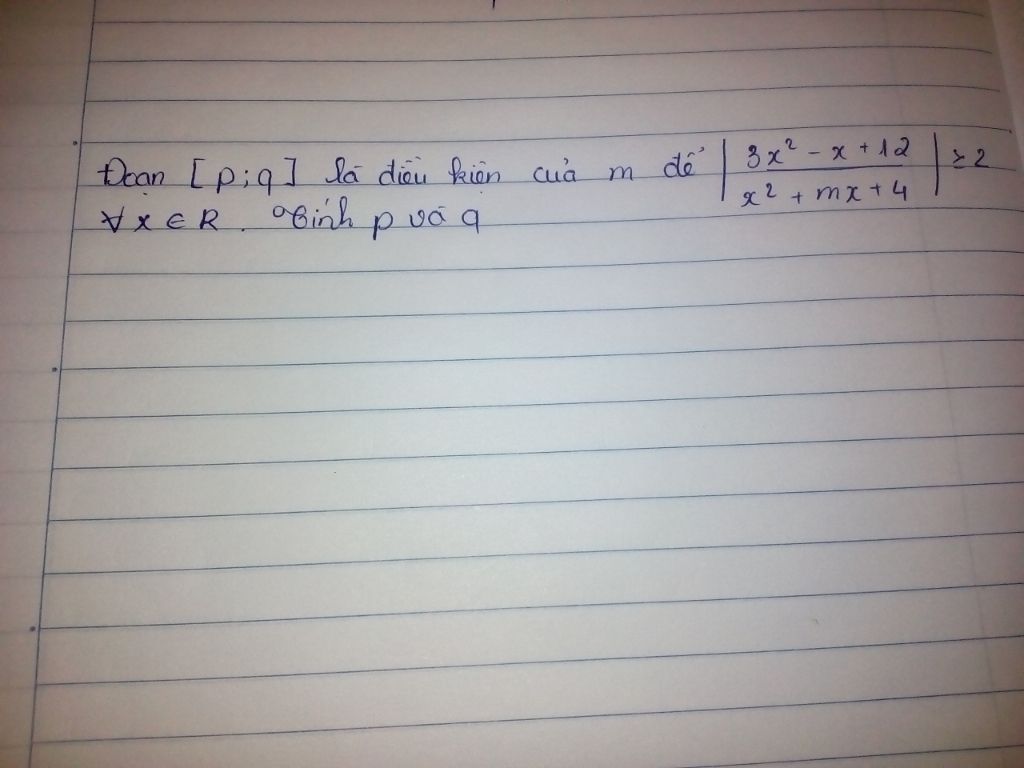 Đoạn [p;q] là điều kiện của m để |(3x² - x + 12)/(x² + mx + 4)| ≥ 2
∀x ∈ R. Tính p và q